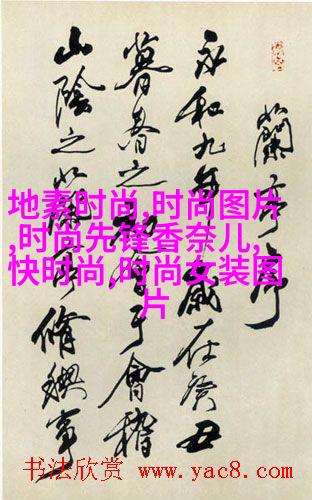 蘭亭序
永和九年歲在癸丑
暮春之初會于會稽
山陰之蘭亭脩禊事
地素时尚,时尚图片
,时尚先锋香奈儿,
快时尚,时尚女装图
片
书法欣赏 www.yac8.com